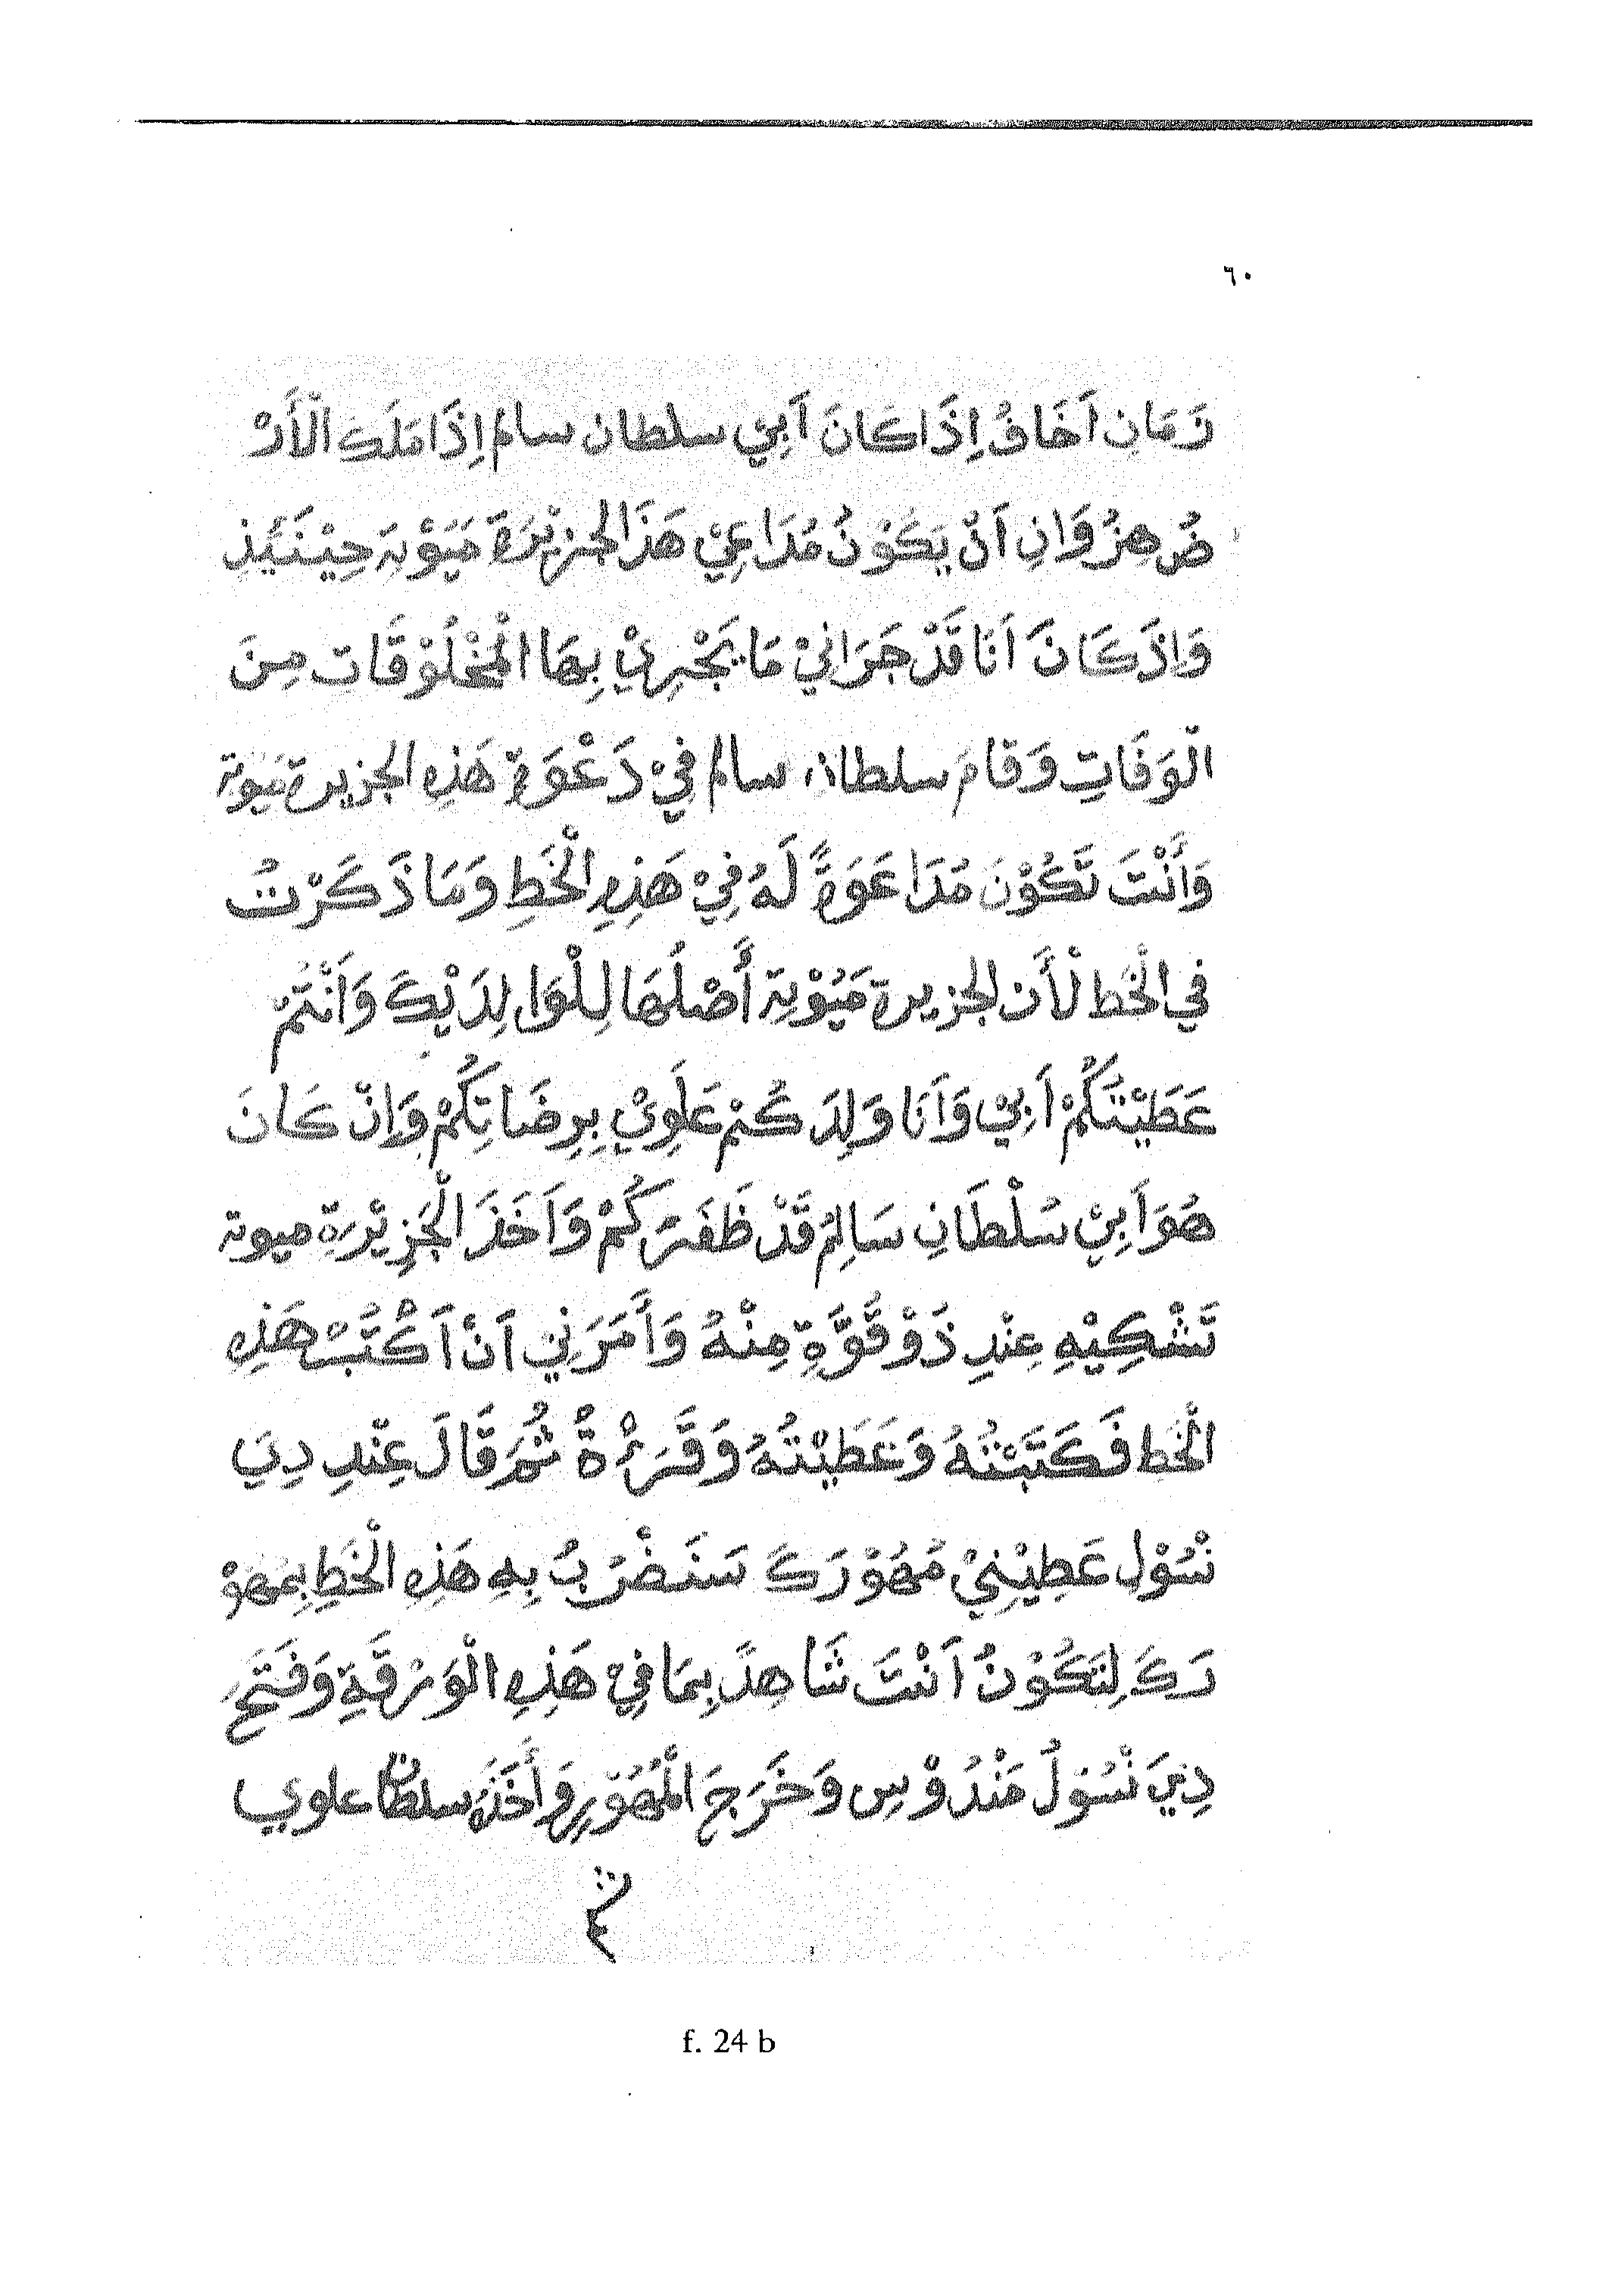 ٦٠
زَمَانِ اَخَافُ اِذَا كَانَ اَبِيْ سلطان سالم اِذَا مَلَكَ الْأَرْ
ضُ هِنْزُوَانِ اَنْ يَكُوْنُ مُدَاعِيْ هَذَا الجزِيْرَةَ مَيَوْتِهَ حِيْنَئِذِ
وَاِذَ كَانَ اَنَا قَدْ جَرَانِيْ مَا يَجْرِيْ بِهَا الْمَخْلُوْقَاتِ مِنَ
الْوَفَاتِ وَقَامَ سلطان سالم فِيْ دَعْوَةِ هَذِهِ الجزيرة مَيوتة
وَأَنْتَ تَكُوْنَ مُدَاعَوَةً لَهُ فِيْ هَذِهِ الْخَطِ وَمَا ذَكَرْتُ
في الْخَط لْأَن الجزيرة مَيُوْتِة أَصْلُهَا لِلْوَالِدَيْكَ وَاَنْتُمْ
عَطَيْتُكُمْ اَبِيْ وَاَنَا وَلِدَكُمْ عَلَوِيْ بِرِضَاتِكُمْ وَاِنْ كَانَ
هُوَ اَبِيْ سُلْطَانِ سَالِمْ قَدْ ظَفَرَكُمْ وَاَخَذَ الْجَزِيْرَةِ ميوتة
تَشْكِيْهِ عِنْدِ ذَوْ قُوَّةٍ مِنْهُ وَأَمَرَنِي اَنْ اَكْتُبْ هَذِهِ
الْخَط فَكَتَبْتُهُ وَعَطَيْتُهُ وَقَرَءْةُ ثُمَّ قَالَ عِنْدِ دِيَ
نْسُوْلِ عَطِيْنِيْ مُهُوْرَكَ سَنَضْرُبُ بِهِ هَذِهِ الْخَطِ بِمُهوْ
رَكَ لِتَكُوْنُ اَنْتَ شَاهِدً بِمَا فِيْ هَذِهِ الْوَرْقَةِ وَفَتَحَ
دِيَ نْسُوْلُ مَنْدُوْسِ وَخَرَجَ الْمُهُوْرِ وَأَخَذَهُ سلطان علوي
f. 24 b